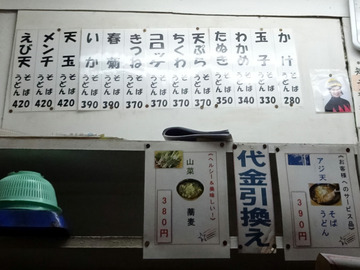 かけ そば うどん 280
玉子 そば うどん 330
わかめ そば うどん 340
たぬき そば うどん 350
天ぷら そば うどん 370
ちくわ そば うどん 370
コロッケ そば うどん 370
きつね そば うどん 370
春菊 そば うどん 390
いか そば うどん 390
天玉 そば うどん 420
メンチ そば うどん 420
えび天 そば うどん 420
《お客様へのサービス品》
アジ天 そば うどん
390円
代金引換え
《ヘルシー&美味しい》
山菜 蕎麦
380円